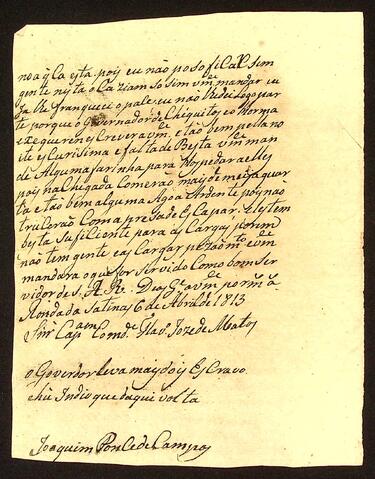 noa y Ca esta. poy eu não poso ficar sem
gente nysta o Caziam so sim vm.ce mandar eu
Ja lhe franqueei o pale, eu não Logo par
te porque o Governador de Chiquitos co Norma
escrevera vm.ce e tão bem pelano
ite escurisima e falta de Besta vm man
de Alguma farinha para Hospedar aelles
poiz na Chegada Comerão mais de meya quar
ta e tão bem alguma Agoa Ardente poy não
Com a presa de Escapar. Ely tem
besta suficiente para as Cargas porem
não tem gente eas Cargas pezão m.to e vm.ce
mandara o que for servido Como bom Ser
vidor de S. A. R. Deos G.e a vm.ce por m.s a.
Ronda da Salinas 6 de Abril de 1813
Snr Cap.am Com.e Joze de Matos
o Goverdor leva mays doiz Escravo
e hu Indio que daqui volta
Joaquim Ponce de Campos